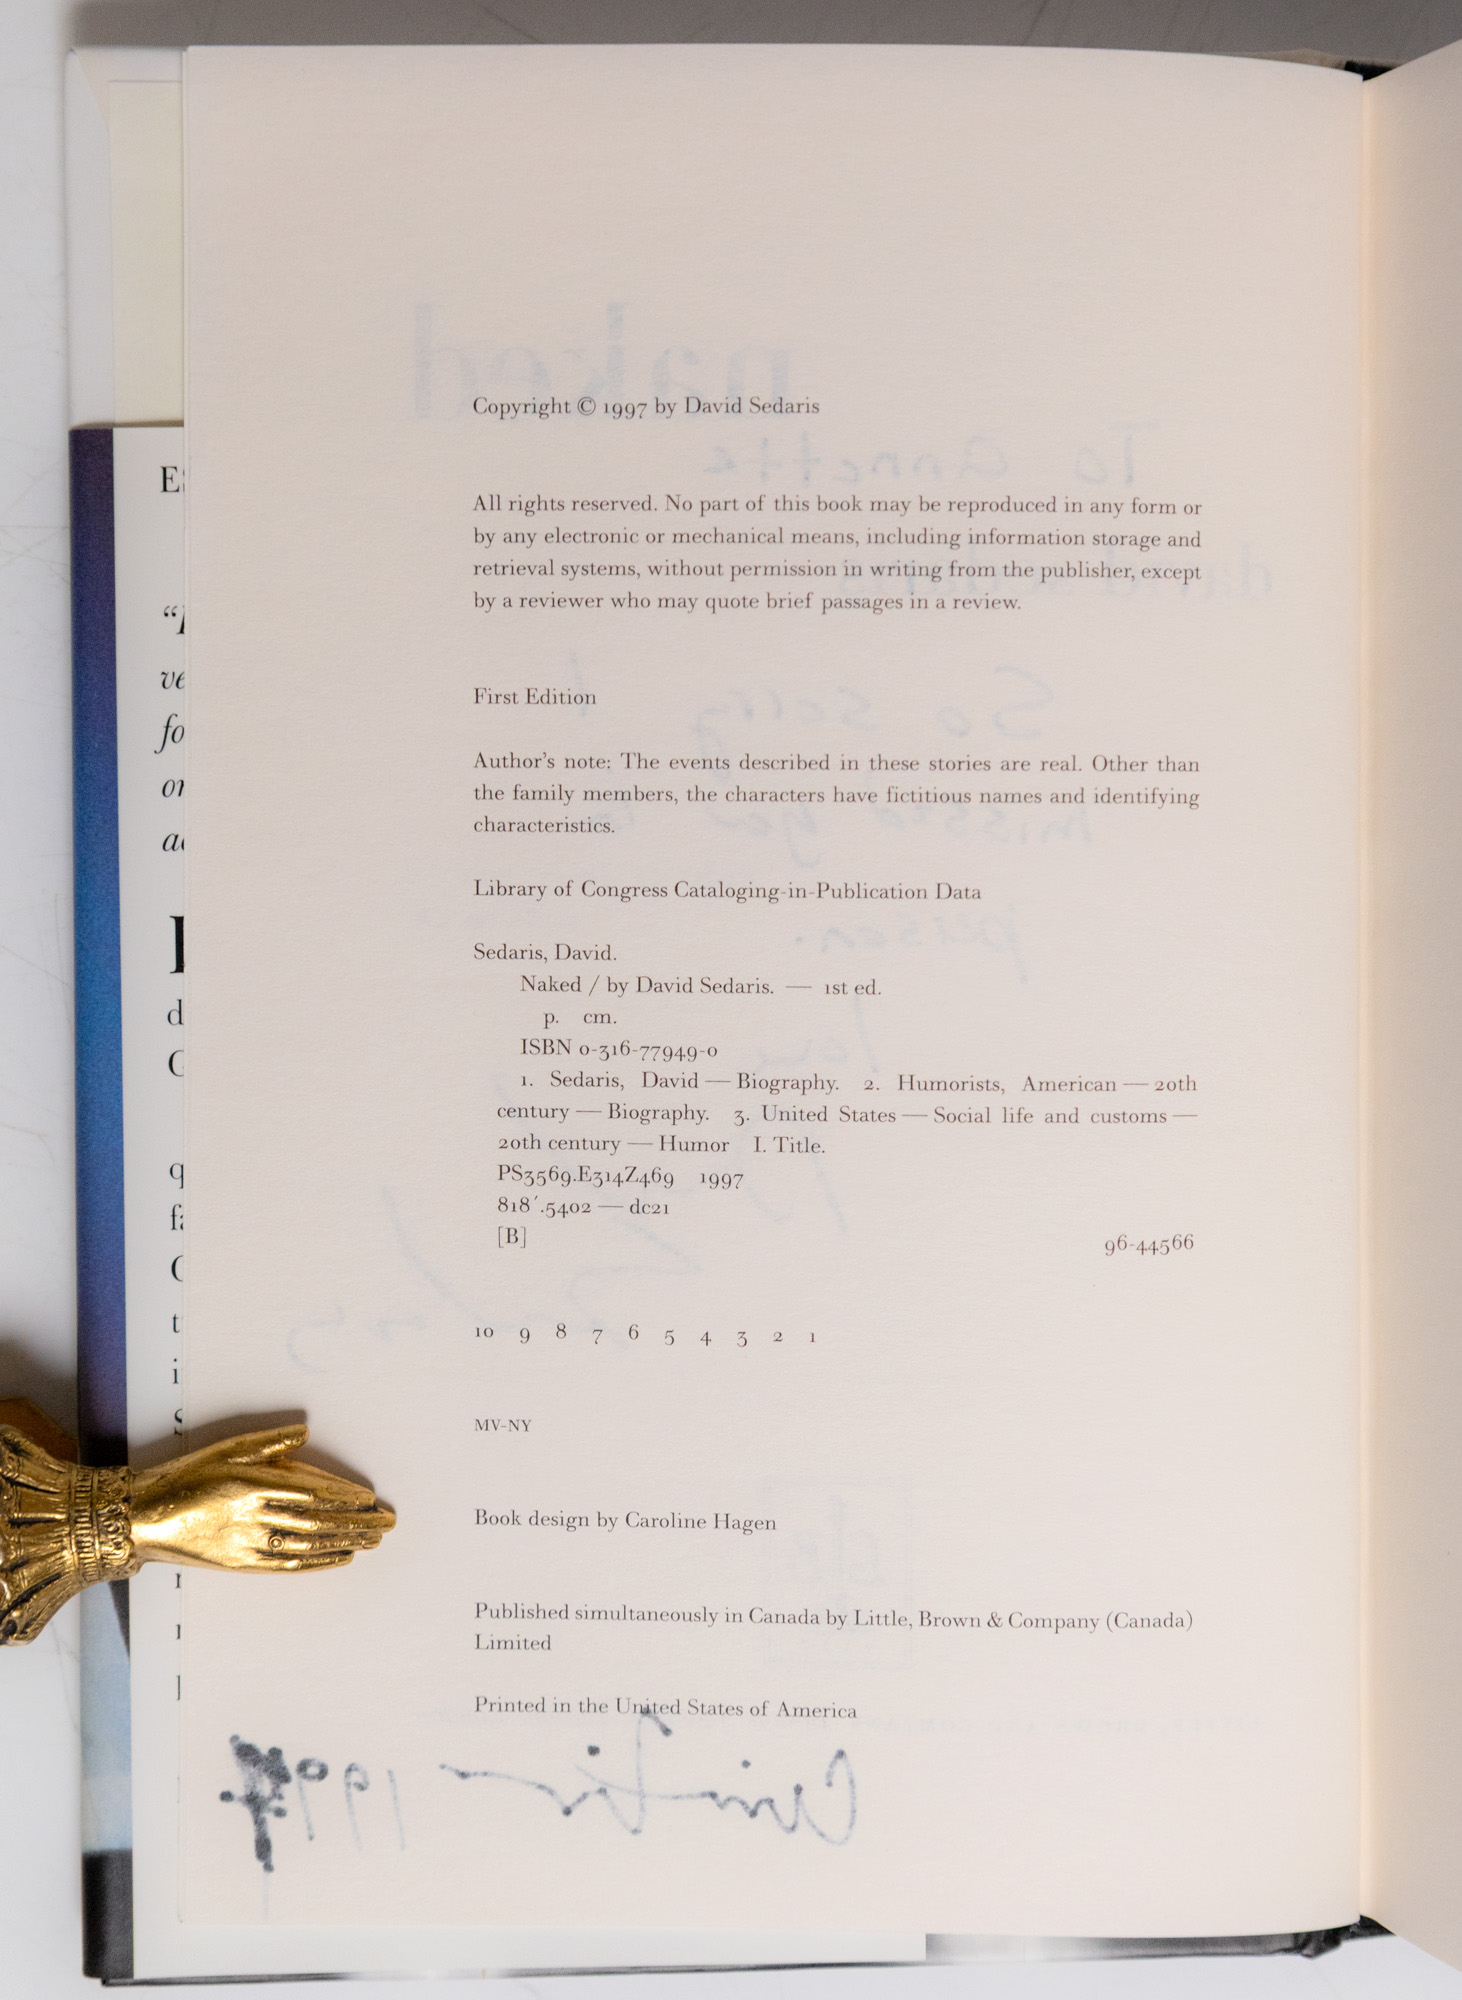 Copyright © 1997 by David Sedaris
All rights reserved. No part of this book may be reproduced in any form or
by any electronic or mechanical means, including information storage and
retrieval systems, without permission in writing from the publisher, except
by a reviewer who may quote brief passages in a review.
First Edition
Author's note: The events described in these stories are real. Other than
the family members, the characters have fictitious names and identifying
characteristics.
Library of Congress Cataloging-in-Publication Data
Sedaris, David.
Naked / by David Sedaris. — 1st ed.
p. cm.
ISBN 0-316-77949-0
1. Sedaris, David — Biography. 2. Humorists, American — 20th
century — Biography. 3. United States — Social life and customs —
20th century — Humor I. Title.
PS3569.E314Z469 1997
818′.5402 — dc21
[B] 96-44566
10 9 8 7 6 5 4 3 2 1
MV-NY
Book design by Caroline Hagen
Published simultaneously in Canada by Little, Brown & Company (Canada)
Limited
Printed in the United States of America